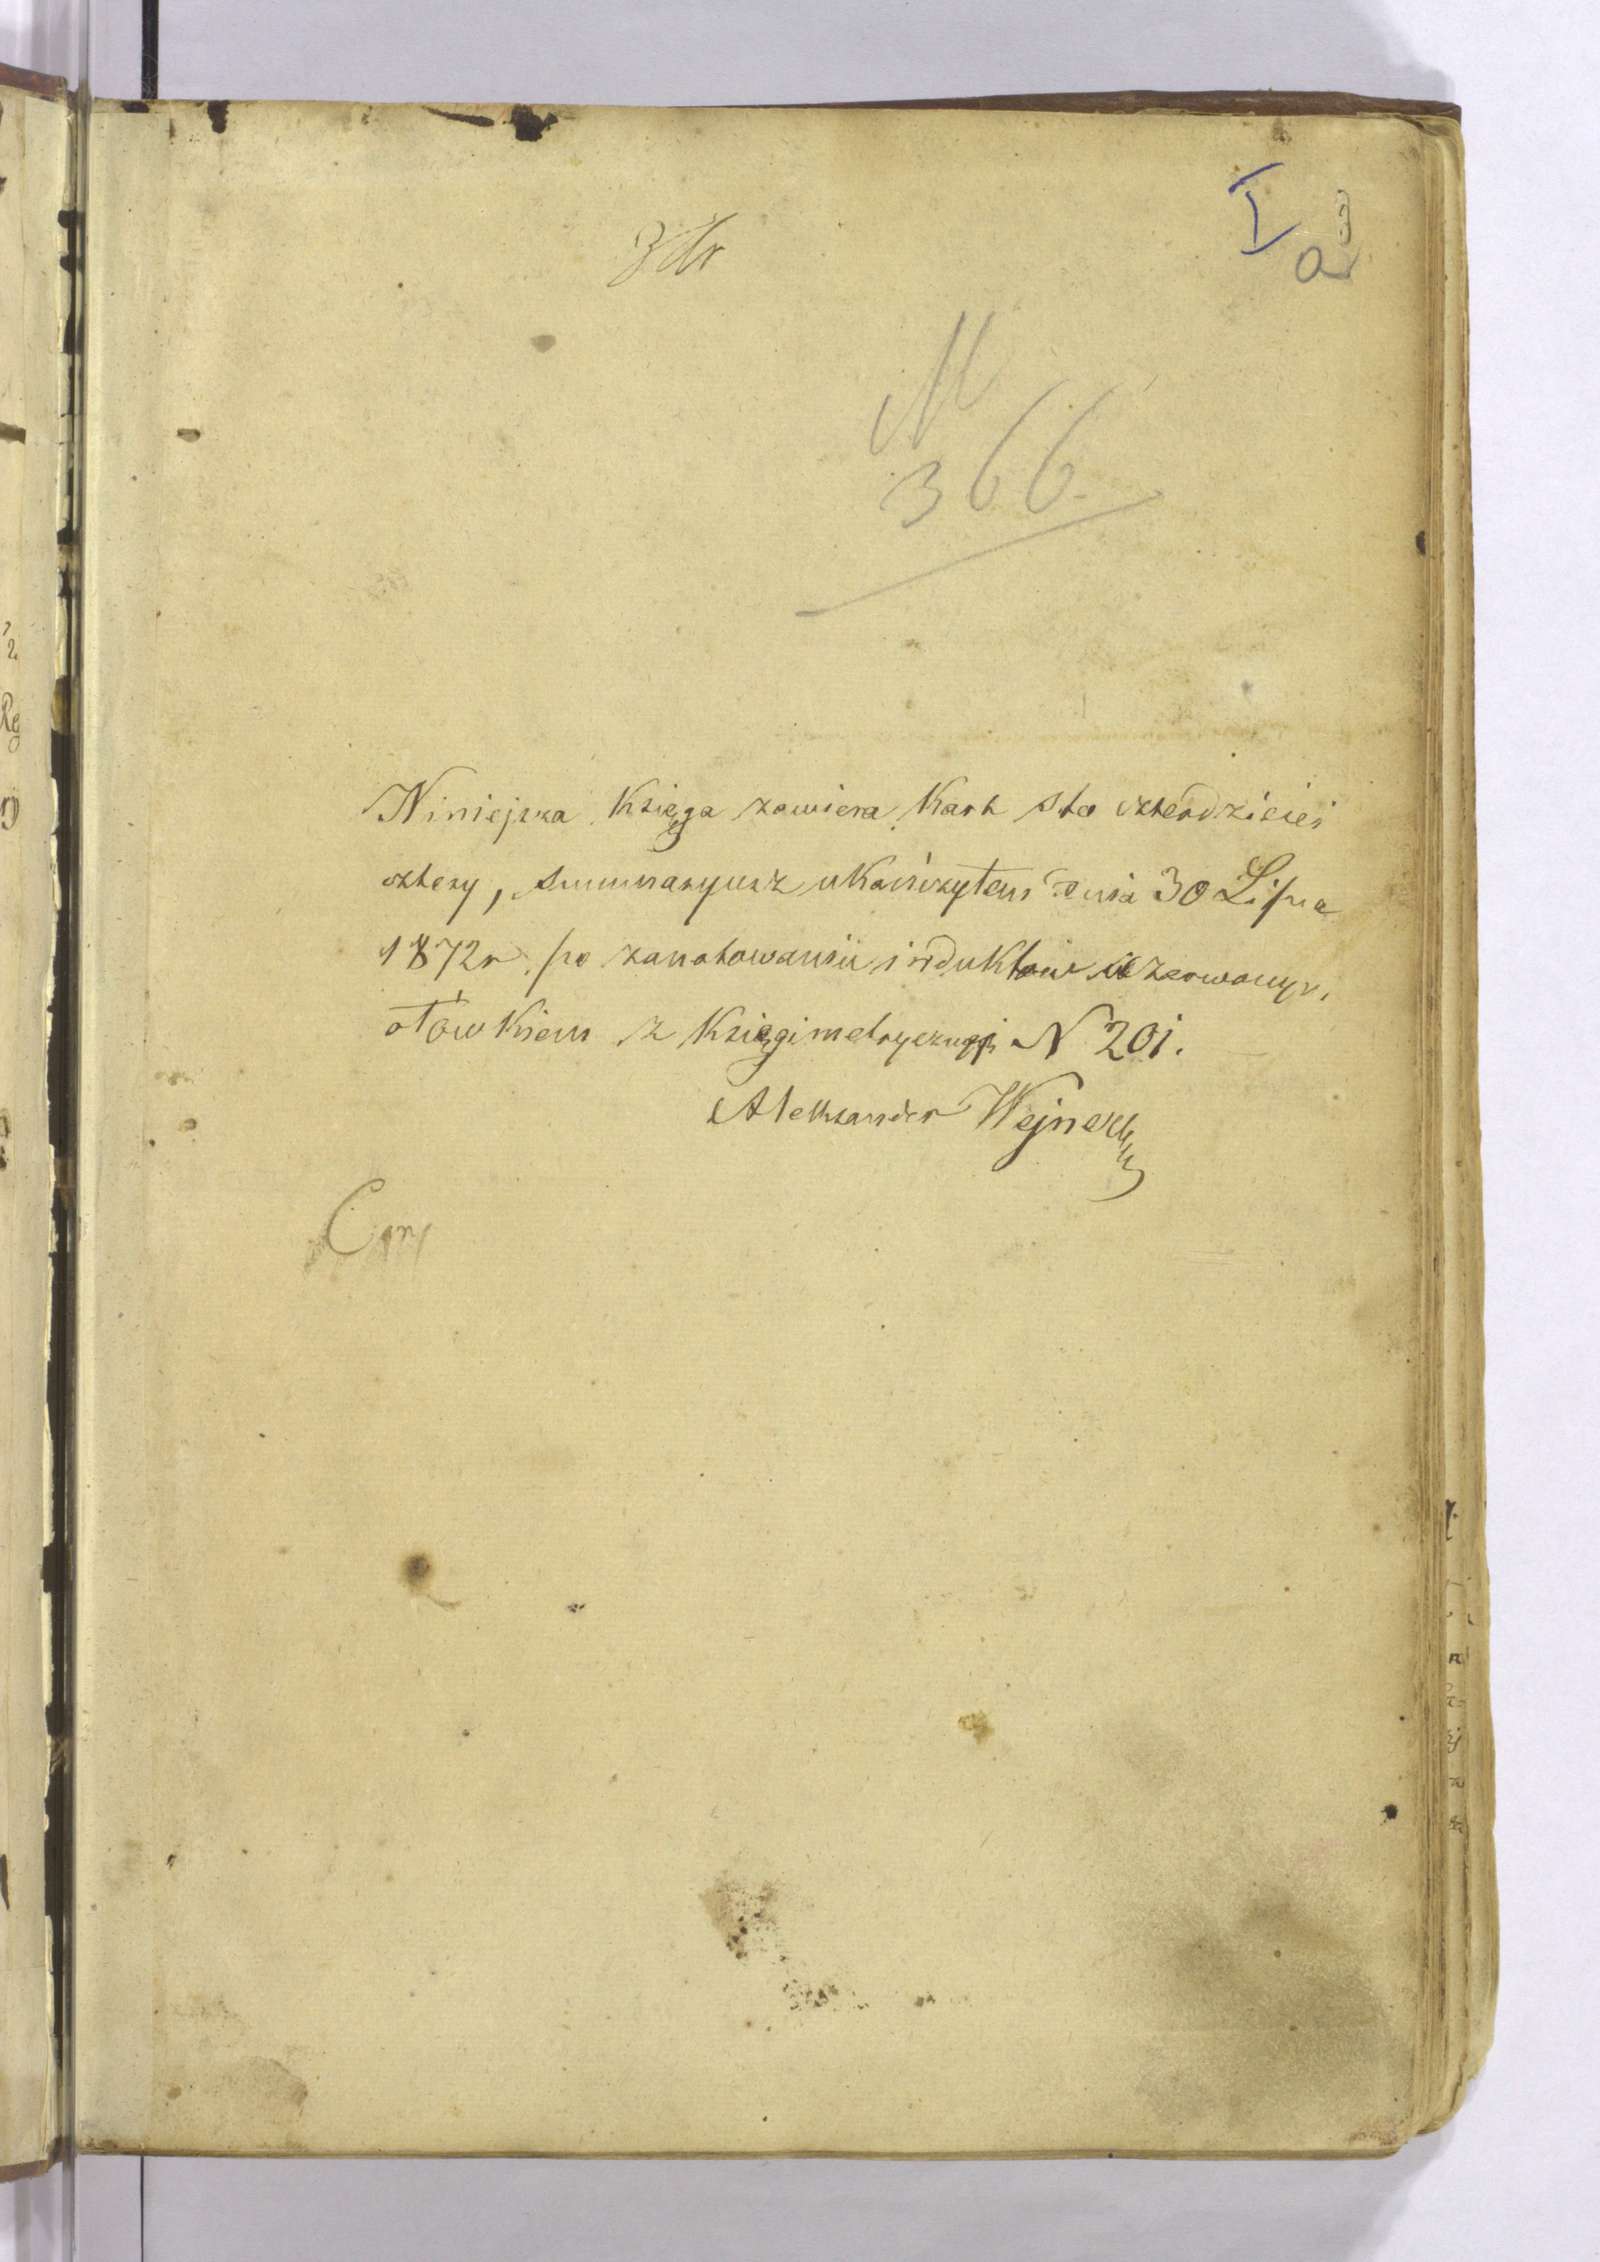 I
a
M
366
Niniejsza Księga zawiera Kart sto czterdzieści
cztery, summaryusz ukończyłem dnia 30 Lipca
1872r. po zanotowaniu induktów
ołówkiem z Księgi metrycznej N 201.
Aleksander Wejnert